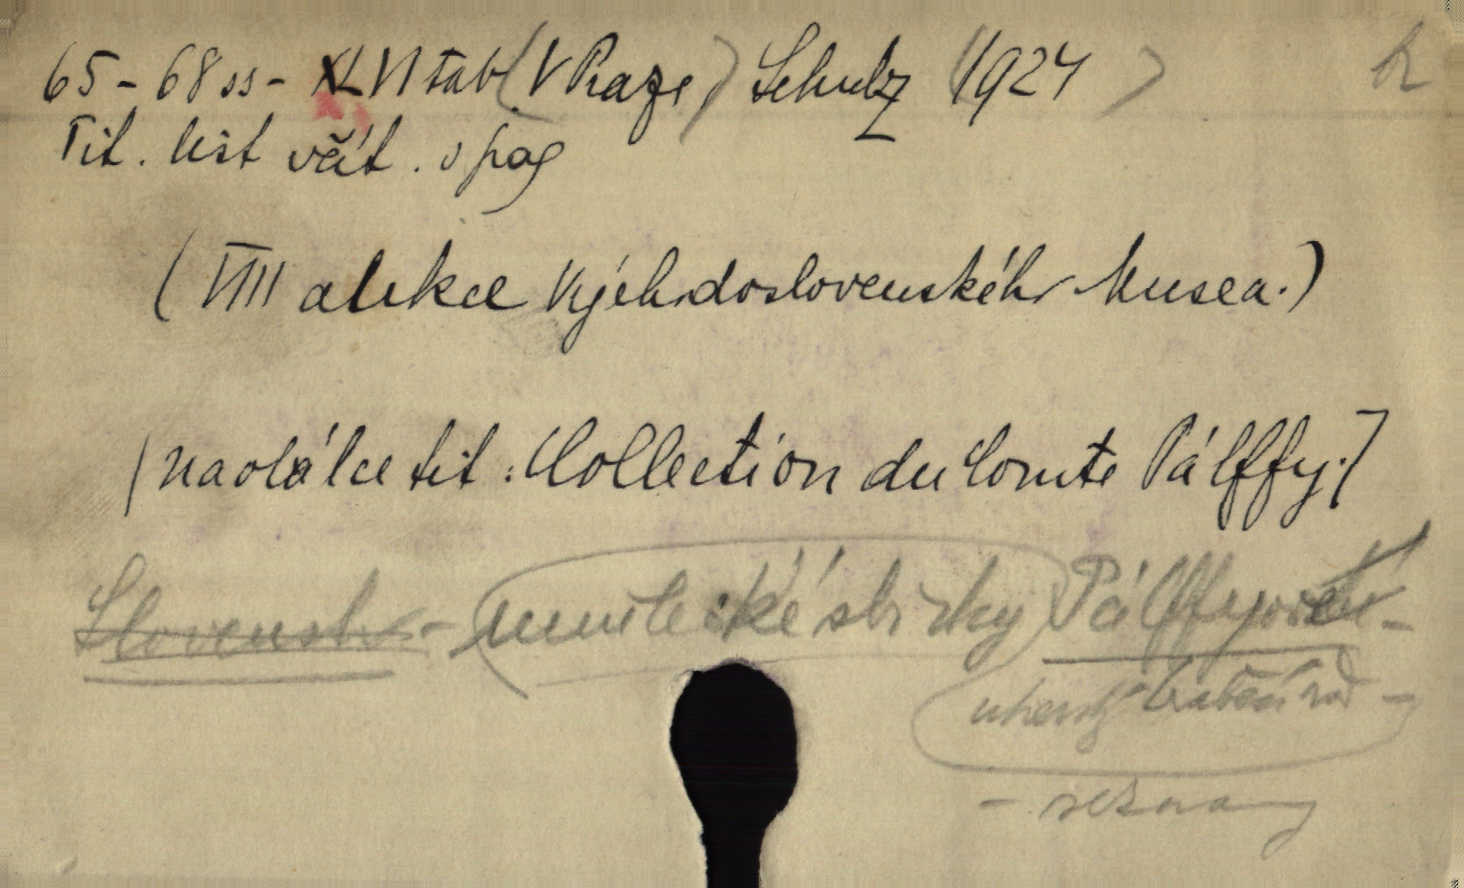 65-68 ss - XLVI tab (V Praze) Schulz (1924)
Tit. list věšt. v pag
(VIII aukce Východoslovenského Musea.)
(na obálce tit: Collection du Comte Pálffy.)
Slovensko - umělecké sbírky Pálffyové -
uherský hraběcí rod -
- seznamy